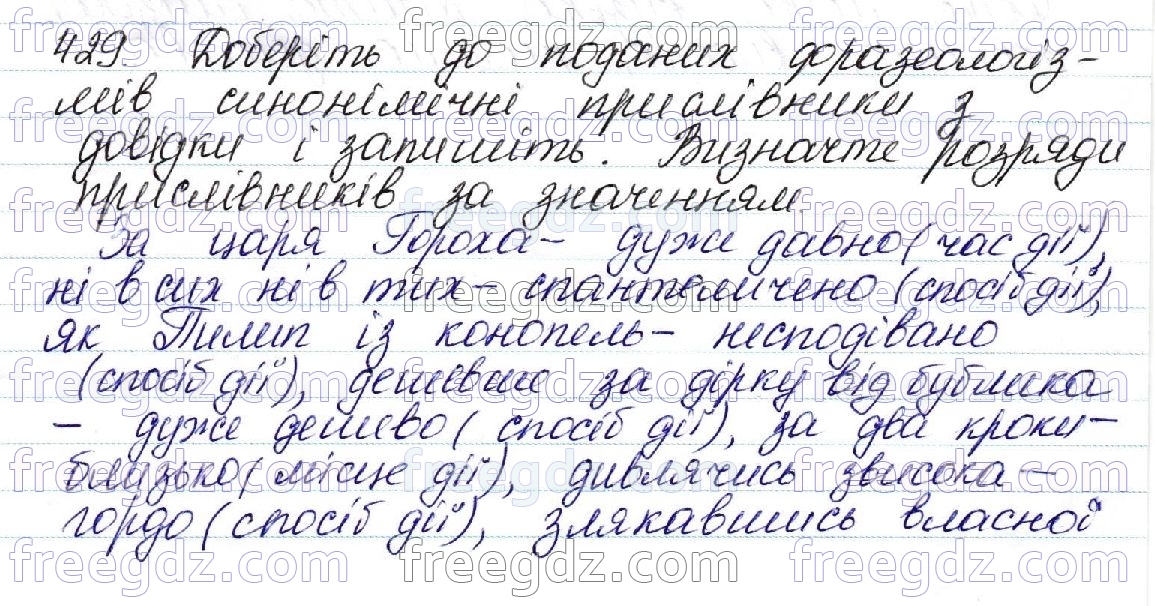 429 Доберіть до поданих фразеологіз-
мів синонімічні прислівники з
довідки і запишіть. Визначте розряди
прислівників за значенням.
За царя Гороха - дуже давно (час дії),
ні в сих ні в тих - спантеличено (спосіб дії),
як Пилип із конопель - несподівано
(спосіб дії), дешевше за дірку від бублика
- дуже дешево (спосіб дії), за два кроки -
близько (місце дії), дивлячись звисока -
гордо (спосіб дії), злякавшись власної
freegdz.com